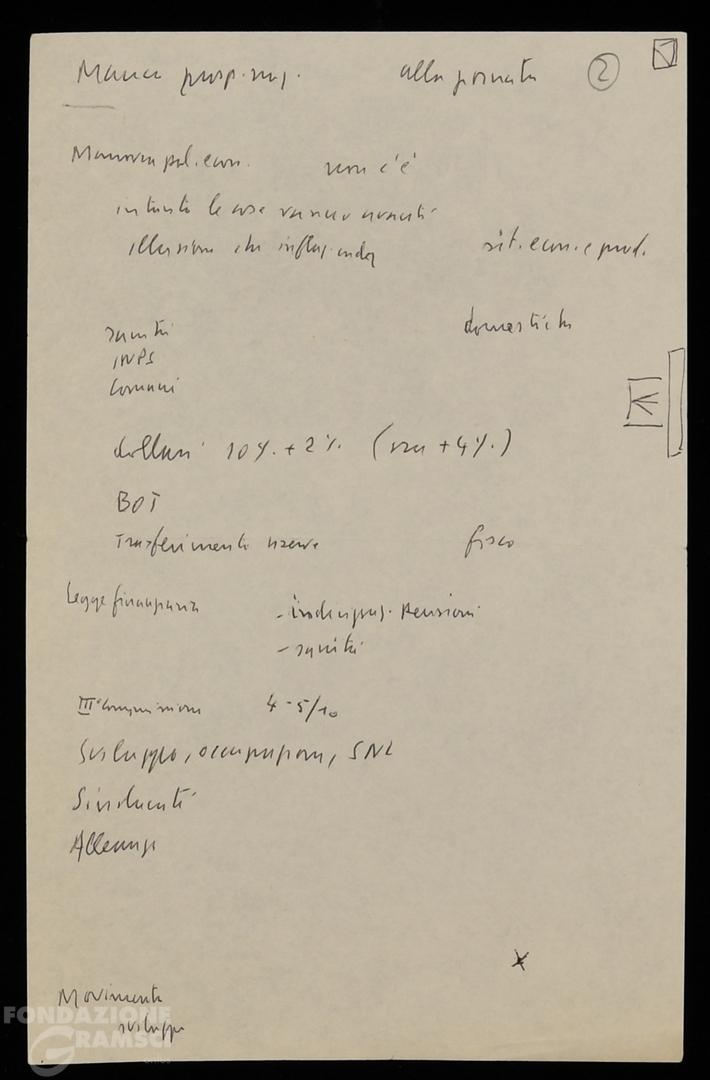 Manca prosp. naz. alla giornata 2
Manovra pol. econ. non c'è
intanto le cose vanno avanti
illusione che inflaz. sit. econ. e prod.
sanità domestiche
INPS
Comuni
dollari 10% + 2% ( +4%)
BOT
Trasferimento risorse fisco
Legge finanziaria - pensioni
- sanità
III commissione 4-5/10
Sviluppo, occupazione, SNL
Sindacati
Alleanze
Movimento
sviluppo
FONDAZIONE
GRAMSCI